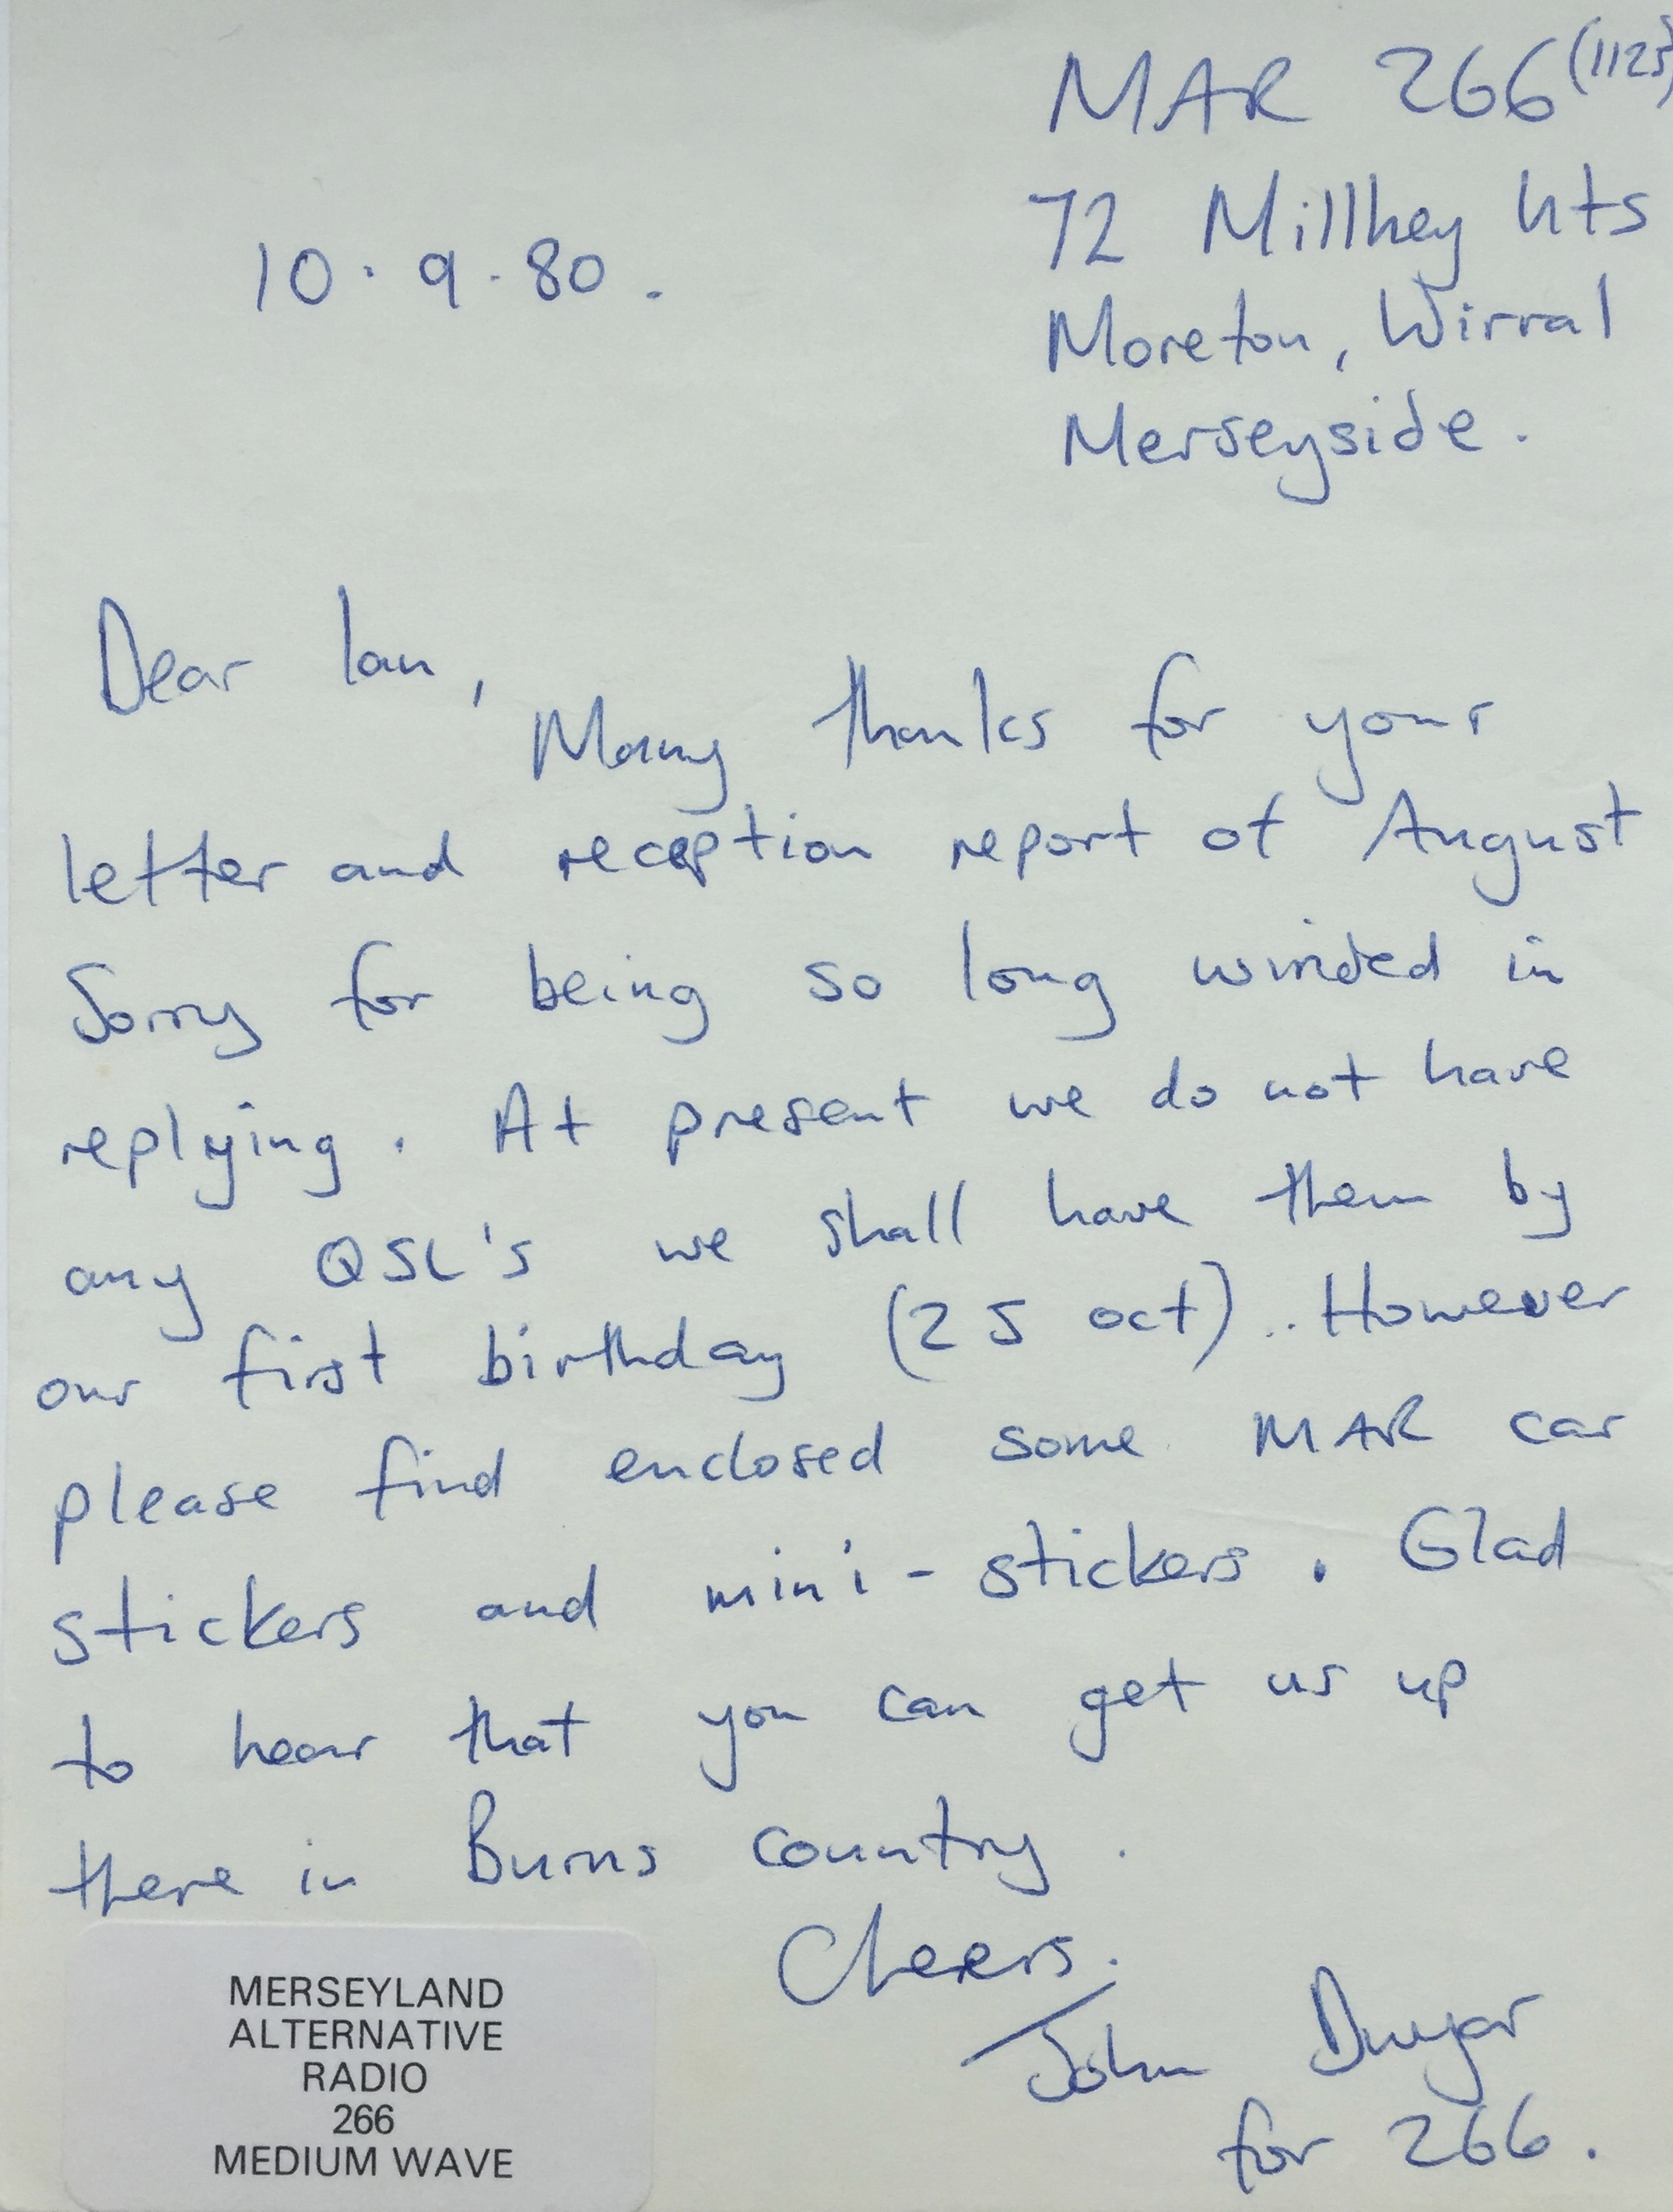 MAR 266 (1125)
72 Millhey hts
Moreton, Wirral
Merseyside.
10.9.80.
Dear Ian,
Many thanks for your
letter and reception report of August
Sorry for being so long winded in
replying. At present we do not have
any QSL's we shall have them by
our first birthday (25 oct)... However
please find enclosed some MAR car
stickers and mini-stickers. Glad
to hear that you can get us up
there in Burns country.
Cheers.
John Dwyer
for 266.
MERSEYLAND
ALTERNATIVE
RADIO
266
MEDIUM WAVE